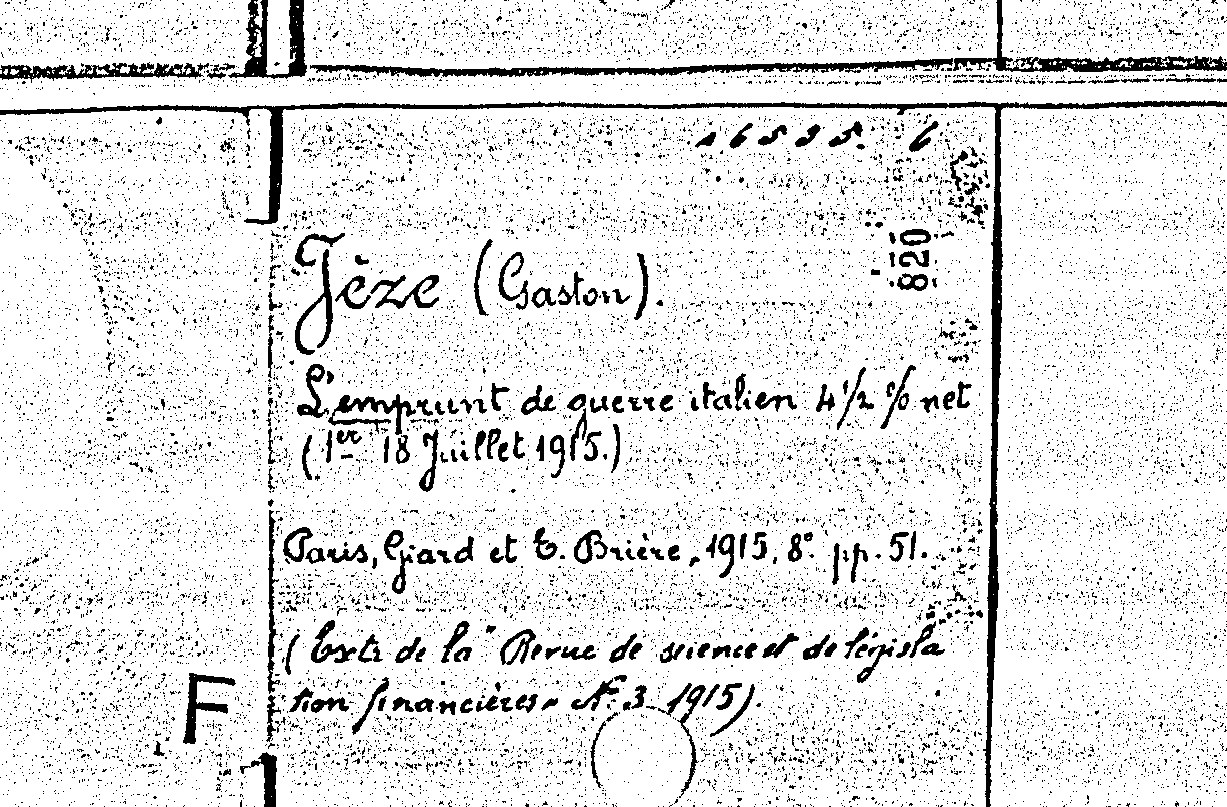 16535. 6
820
Jèze (Gaston).
L'emprunt de guerre italien 4 1/2 % net
(1er 18 Juillet 1915.)
Paris, Giard et E. Brière, 1915, 8° pp. 51.
(Extr. de la "Revue de science et de législa
tion financières" N° 3 1915).
F